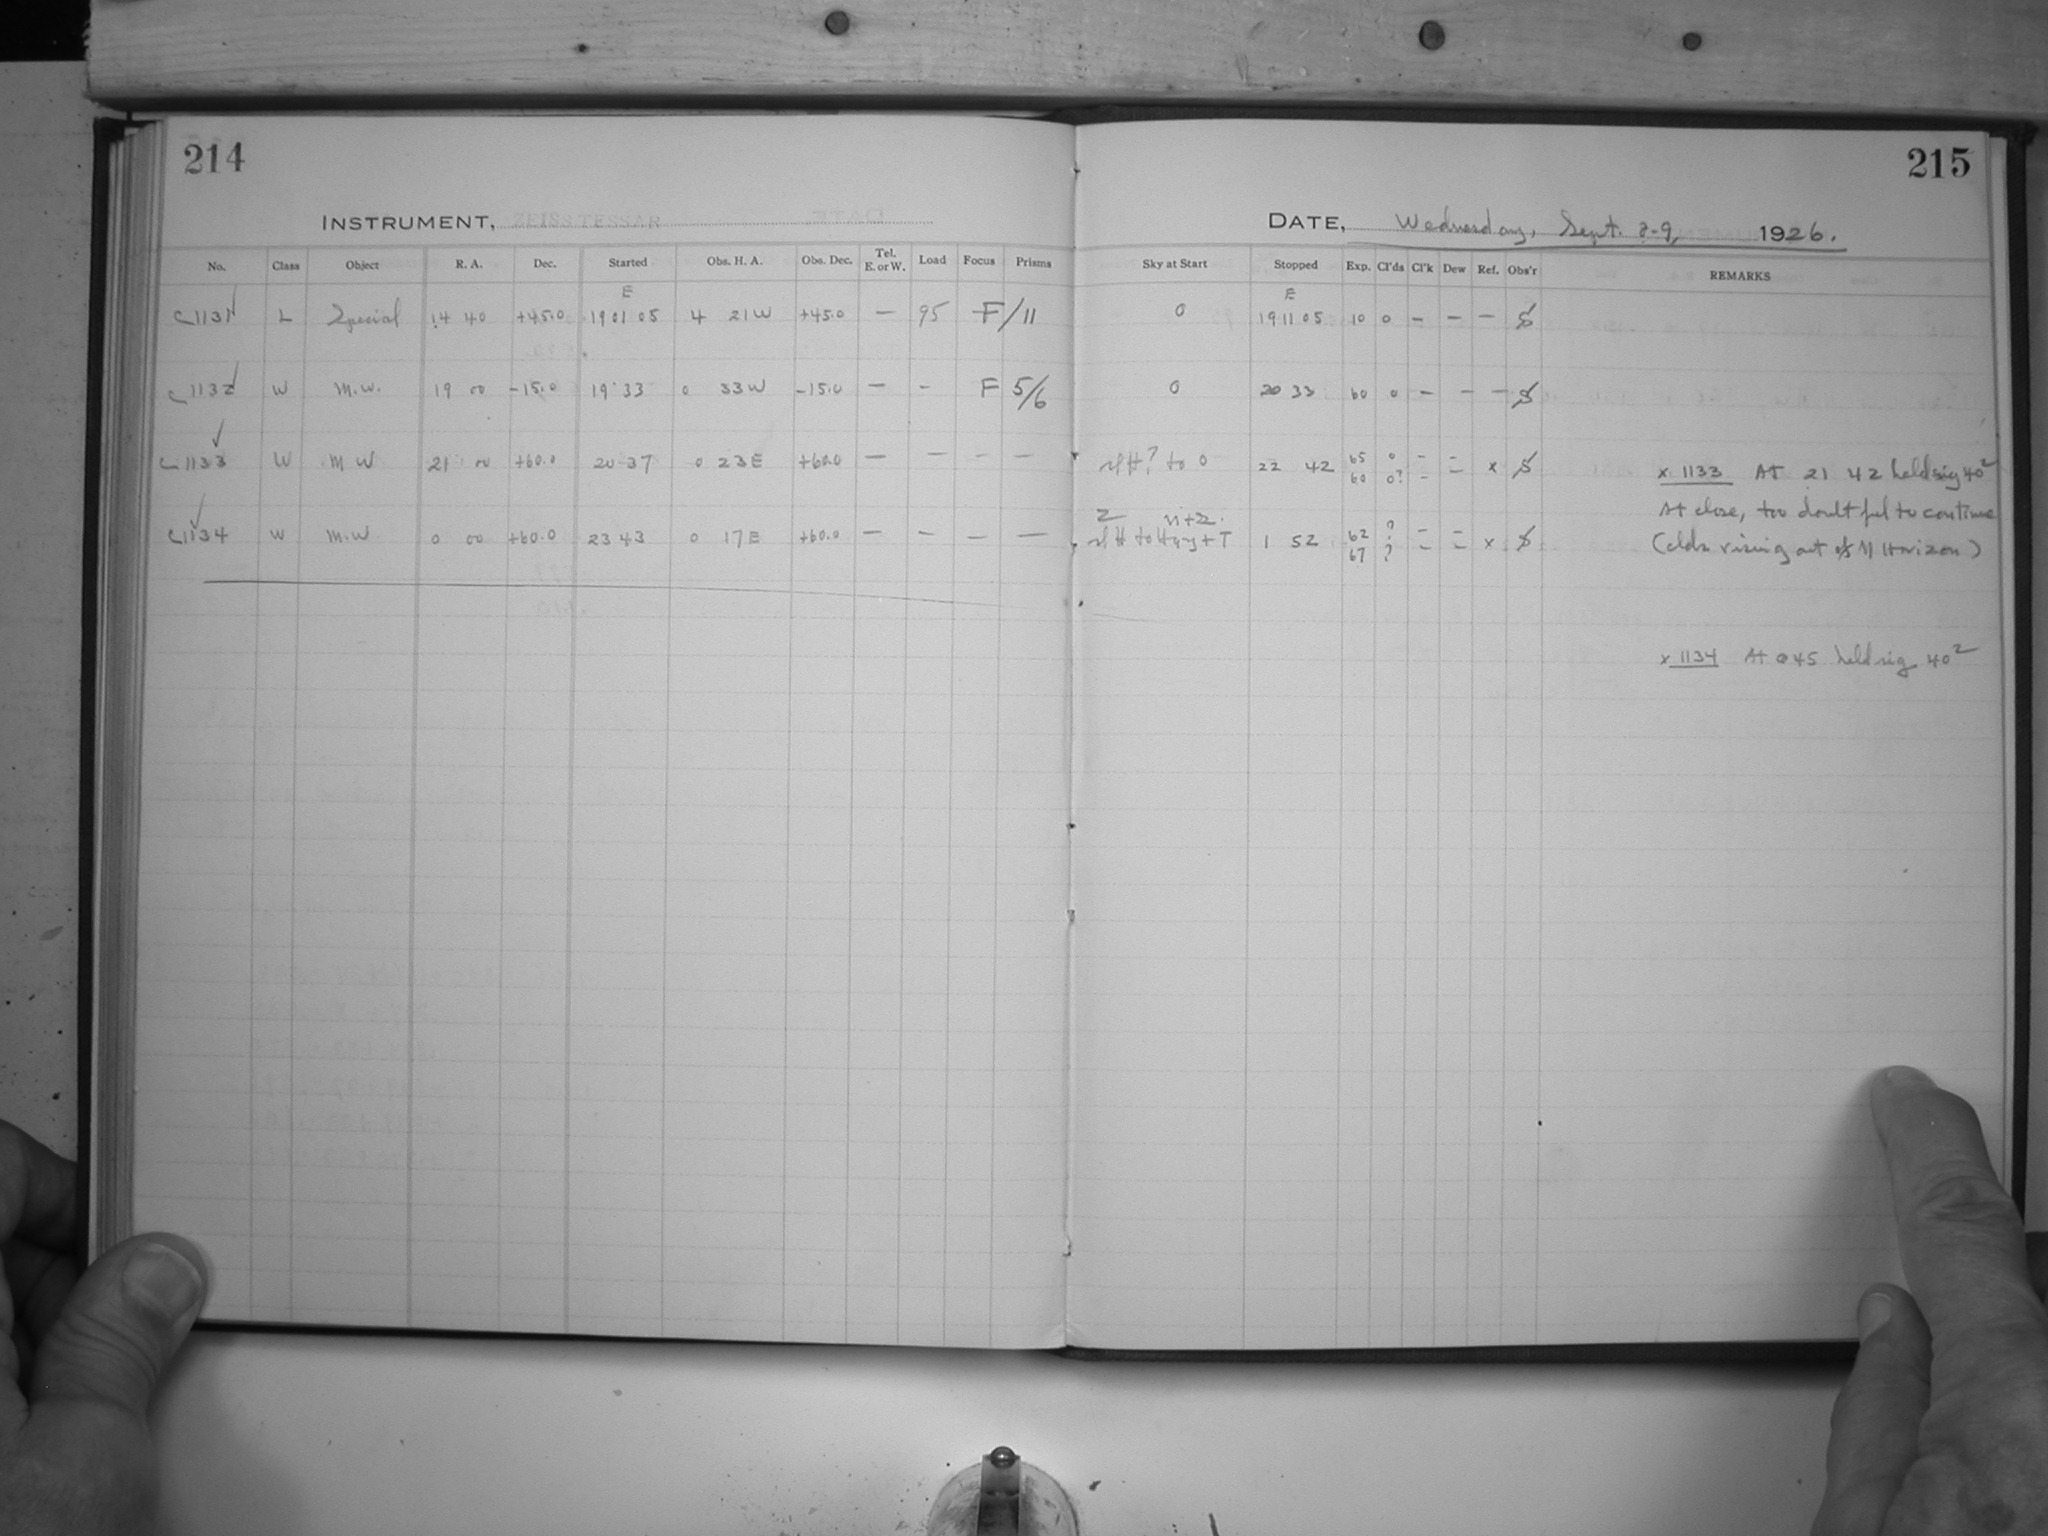 214
215
INSTRUMENT, ZEISS TESSAR
DATE, Wednesday, Sept. 8-9, 1926.
No. Class Object R. A. Dec. Started Obs. H. A. Obs. Dec. Tel. E. or W. Load Focus Prisms Sky at Start Stopped Exp. Cl'ds Cl'k Dew Ref. Obs'r REMARKS
E E
C1131 L Special 14 40 +45.0 19 01 05 4 21W +45.0 — 95 F/11 0 19 11 05 10 0 - - -
C1132 W M.W. 19 00 -15.0 19 33 0 33W -15.0 — - F 5/6 0 20 33 60 0 - - -
C1133 W MW 21 00 +60.0 20 37 0 23E +60.0 — - - - ? to 0 22 42 65 0 - - x
60 0? - -
x 1133 At 21 42 held sig 40²
At close, too doubtful to continue
C1134 W M.W 0 00 +60.0 23 43 0 17E +60.0 — - - — 1 52 62 ? - - x
67 ? - -
(clds rising out of N Horizon)
x 1134 At 0 45 held sig 40²